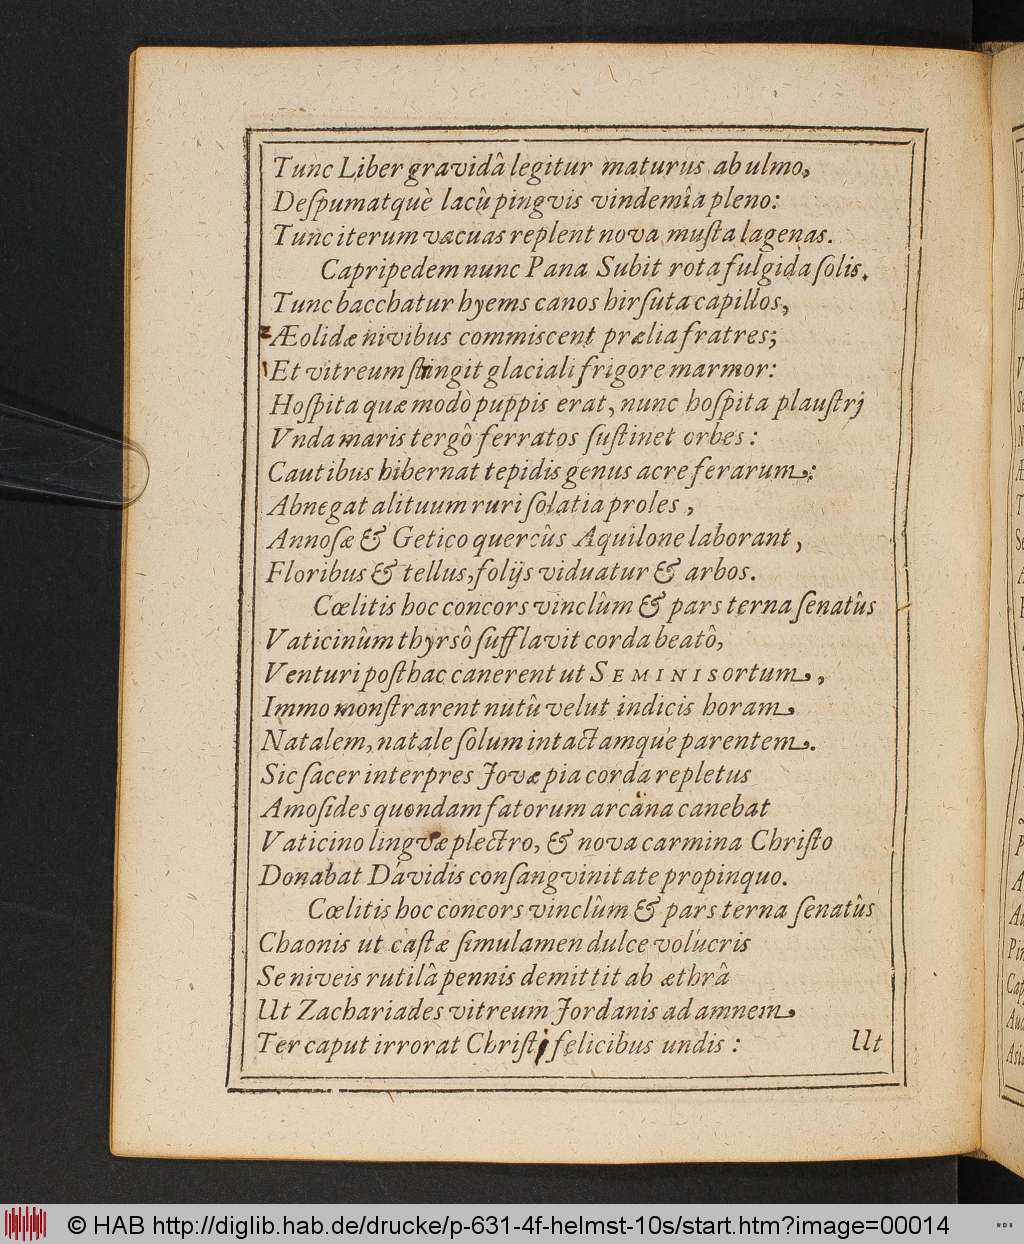 Tunc Liber gravidâ legitur maturus ab ulmo,
Deſpumatquè lacû pingvis vindemîa pleno:
Tunc iterum vacuas replent nova muſta lagenas.
Capripedem nunc Pana Subit rota fulgida ſolis.
Tunc bacchatur hyems canos hirſuta capillos,
Æolidæ nivibus commiscent prælia fratres;
Et vitreum ſtringit glaciali frigore marmor:
Hoſpita quæ modò puppis erat, nunc hoſpita plauſtrj
Vnda maris tergô ferratos ſuſtinet orbes:
Cautibus hibernat tepidis genus acre ferarum:
Abnegat alituum ruri ſolatia proles,
Annoſæ & Getico quercûs Aquilone laborant,
Floribus & tellus, folijs viduatur & arbos.
Cœlitis hoc concors vinclûm & pars terna ſenatûs
Vaticinûm thyrsô ſufflavit corda beatô,
Venturi poſthac canerent ut SEMINIS ortum,
Immo monſtrarent nutû velut indicis horam
Natalem, natale ſolum intactamque parentem.
Sic ſacer interpres Jovæ pia corda repletus
Amoſides quondam fatorum arcana canebat
Vaticino lingvæ plectro, & nova carmina Chriſto
Donabat Davidis conſangvinitate propinquo.
Cœlitis hoc concors vinclûm & pars terna ſenatûs
Chaonis ut caſtæ ſimulamen dulce volucris
Se niveis rutilâ pennis demittit ab æthrâ
Ut Zachariades vitreum Jordanis ad amnem
Ter caput irrorat Chriſtj felicibus undis:
Ut
© HAB http://diglib.hab.de/drucke/p-631-4f-helmst-10s/start.htm?image=00014